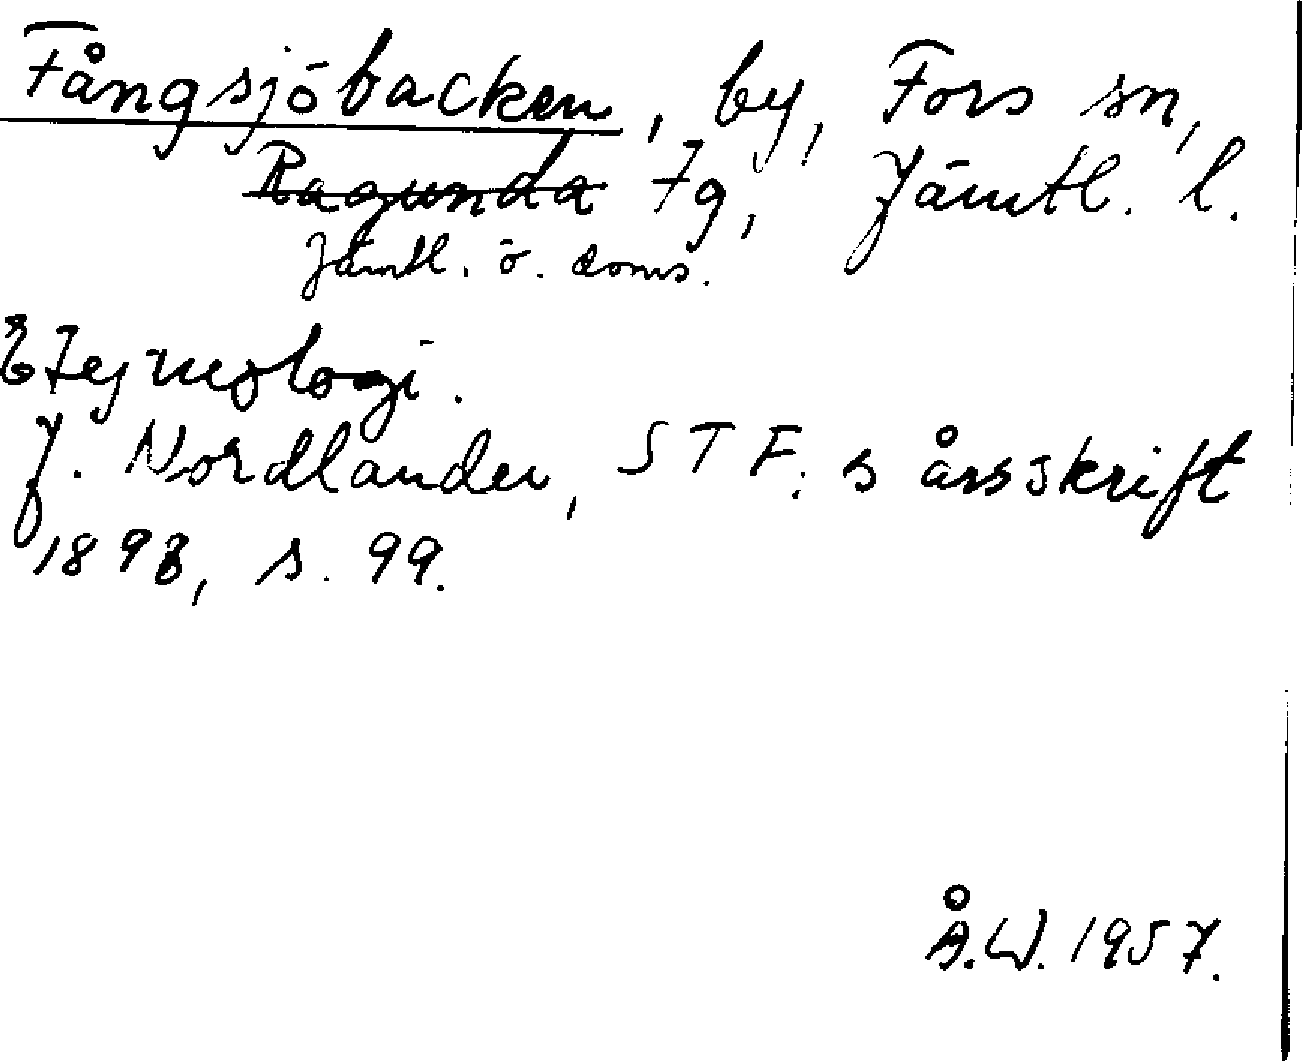 Fångsjöbacken, by, Fors sn,
Ragunda tg, Jämtl. l.
Jämtl. ö. doms.
Etymologi.
J. Nordlander, STF:s årsskrift
1898, s. 99.
Å.W. 1957.